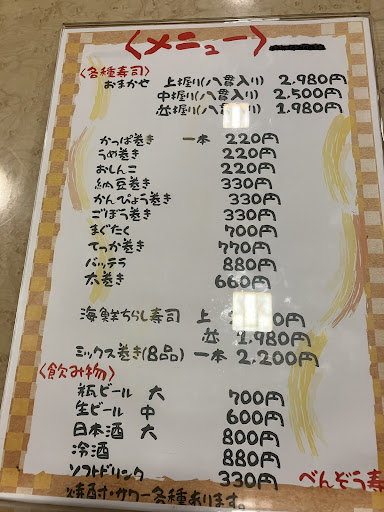 〈メニュー〉
〈各種寿司〉
おまかせ 上握り(八貫入り) 2,980円
中握り(八貫入り) 2,500円
並握り(八貫入り) 1,980円
かっぱ巻き 一本 220円
うめ巻き 220円
おしんこ 220円
納豆巻き 330円
かんぴょう巻き 330円
ごぼう巻き 330円
まぐたく 700円
てっか巻き 770円
バッテラ 880円
太巻き 660円
海鮮ちらし寿司 上 円
並 1,980円
ミックス巻き(8品) 一本 2,200円
〈飲み物〉
瓶ビール 大 700円
生ビール 中 600円
日本酒 大 800円
冷酒 880円
ソフトドリンク 330円
焼酎・サワー各種あります。
べんぞう寿